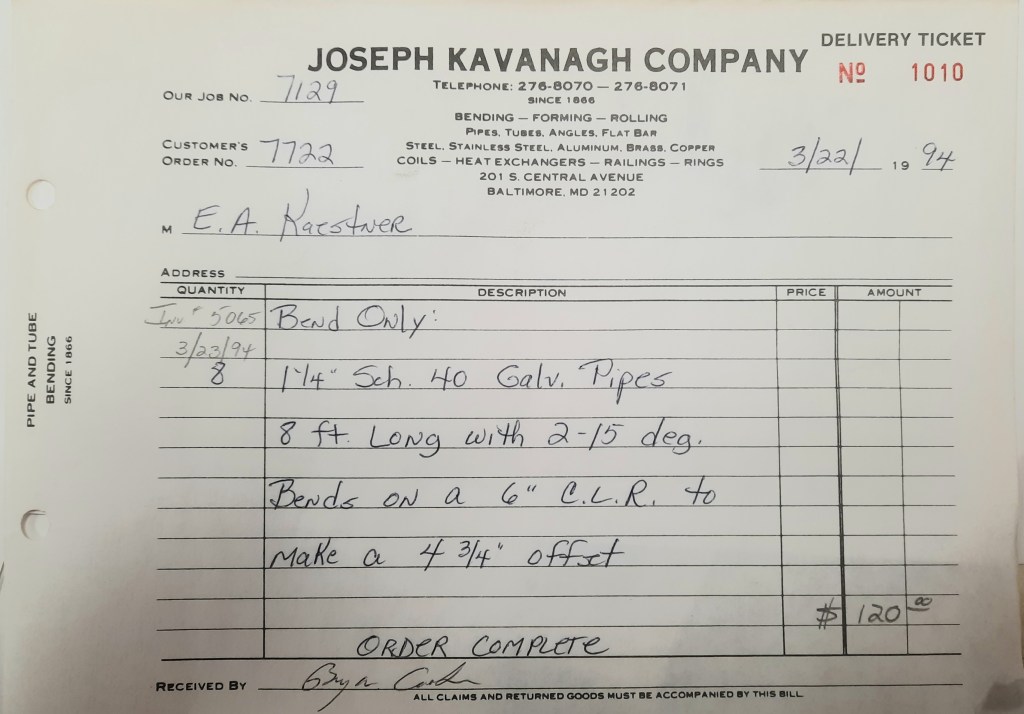 DELIVERY TICKET
JOSEPH KAVANAGH COMPANY
Nº 1010
OUR JOB NO. 7129
TELEPHONE: 276-8070 — 276-8071
SINCE 1866
BENDING — FORMING — ROLLING
PIPES, TUBES, ANGLES, FLAT BAR
CUSTOMER'S ORDER NO. 7722
STEEL, STAINLESS STEEL, ALUMINUM, BRASS, COPPER
COILS — HEAT EXCHANGERS — RAILINGS — RINGS
3/22/ 19 94
201 S. CENTRAL AVENUE
BALTIMORE, MD 21202
M E.A. Kaestner
ADDRESS
QUANTITY DESCRIPTION PRICE AMOUNT
Inv # 5065 Bend Only:
3/23/94
8 1 1/4" Sch. 40 Galv. Pipes
8 ft. Long with 2-15 deg.
Bends on a 6" C.L.R. to
make a 4 3/4" offset
$ 120 00
ORDER COMPLETE
RECEIVED BY
ALL CLAIMS AND RETURNED GOODS MUST BE ACCOMPANIED BY THIS BILL
PIPE AND TUBE
BENDING
SINCE 1866